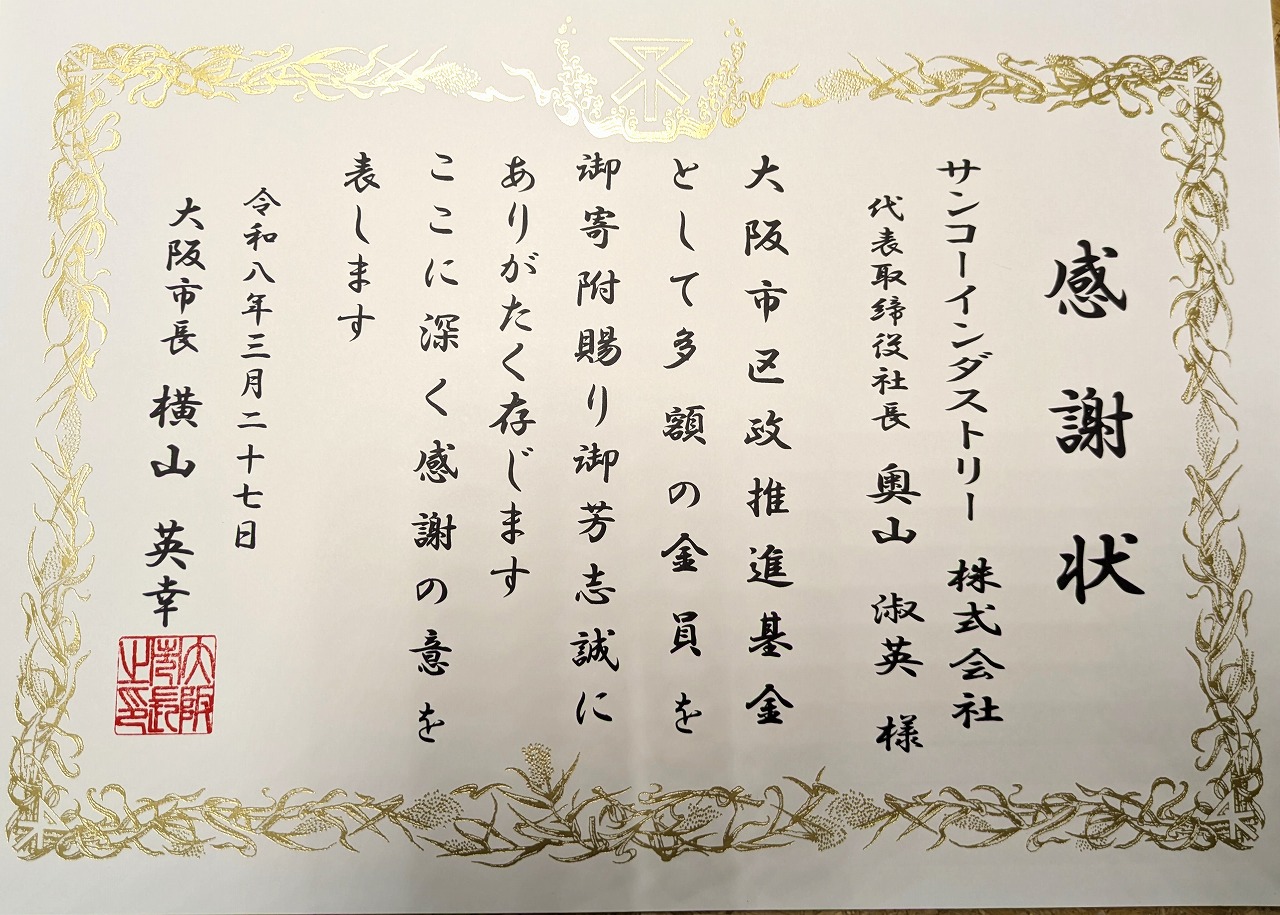 感謝状
サンコーインダストリー 株式会社
代表取締役社長 奥山 淑英 様
大阪市区政推進基金
として多額の金員を
御寄附賜り御芳志誠に
ありがたく存じます
ここに深く感謝の意を
表します
令和八年三月二十七日
大阪市長 横山 英幸
大阪市長之印